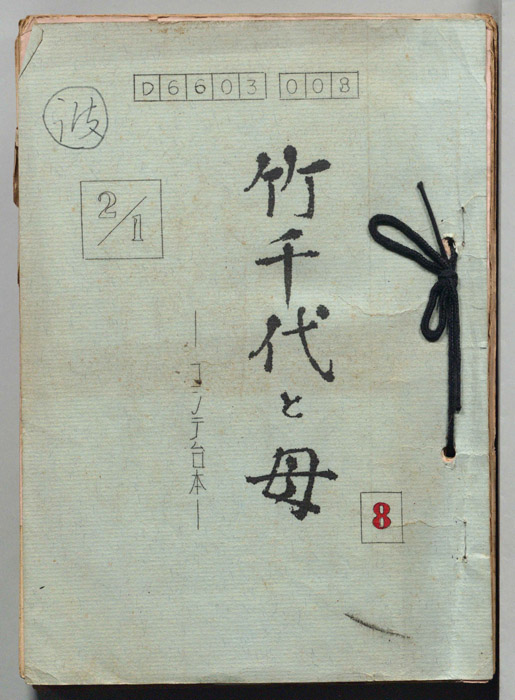 D6603 008
波
2/1
竹千代と母
―コンテ台本―
8